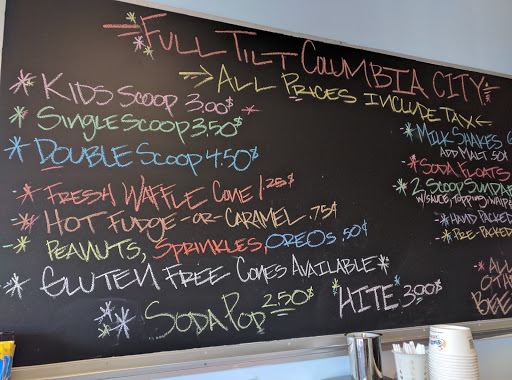 FULL TILT COLUMBIA CITY
ALL PRICES INCLUDE TAX
KIDS SCOOP 3.00$
SINGLE SCOOP 3.50$
DOUBLE SCOOP 4.50$
FRESH WAFFLE CONE 1.25$
HOT FUDGE -OR- CARAMEL .75¢
PEANUTS, SPRINKLES, OREOS .50¢
GLUTEN FREE CONES AVAILABLE
SODA POP 2.50$
HITE 3.00$
MILK SHAKES 6
ADD MALT .50¢
SODA FLOATS
2 SCOOP SUNDA
W/SAUCE, TOPPING, WHIP
HAND PACKED
PRE-PACKED
ALL
OTH
BEE